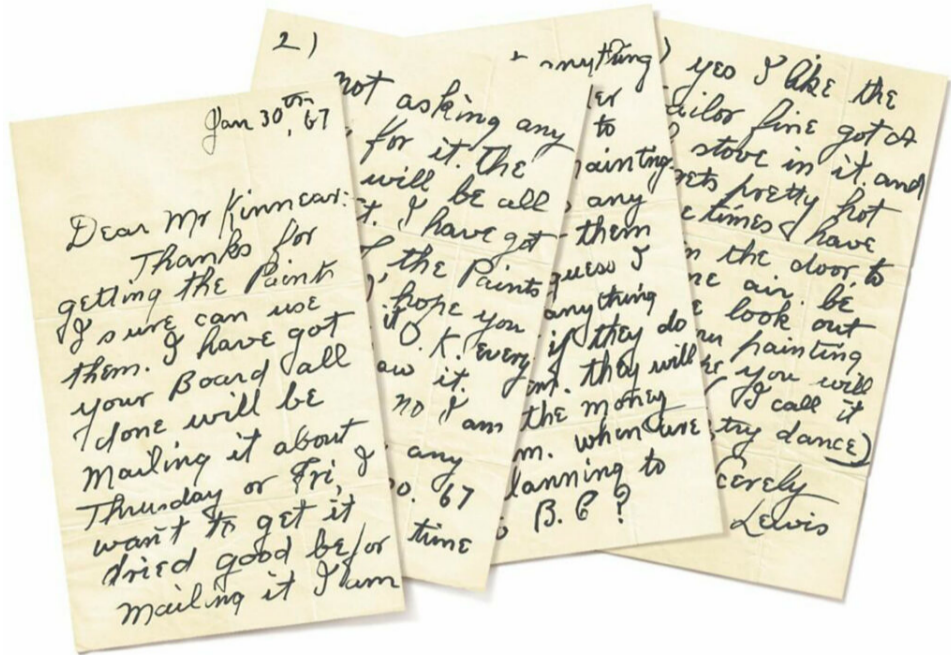 Jan 30th, 67
Dear Mr Kinnear:
Thanks for
getting the Paints
I sure can use
them. I have got
your Board all
done will be
Mailing it about
Thursday or Fri, I
want to get it
dried good befor
mailing it I am
2)
not asking any
for it. The
will be all
I have got
the Paints
hope you
O.K. every
it.
no I am
any
67
time
anything
to
any
them
guess I
anything
if they do
they will
the money
when are
to
B.C?
yes I like the
fine got a
stove in it. and
pretty hot
times I have
the door, to
air. be
look out
painting
you will
(I call it
try dance)
Lewis